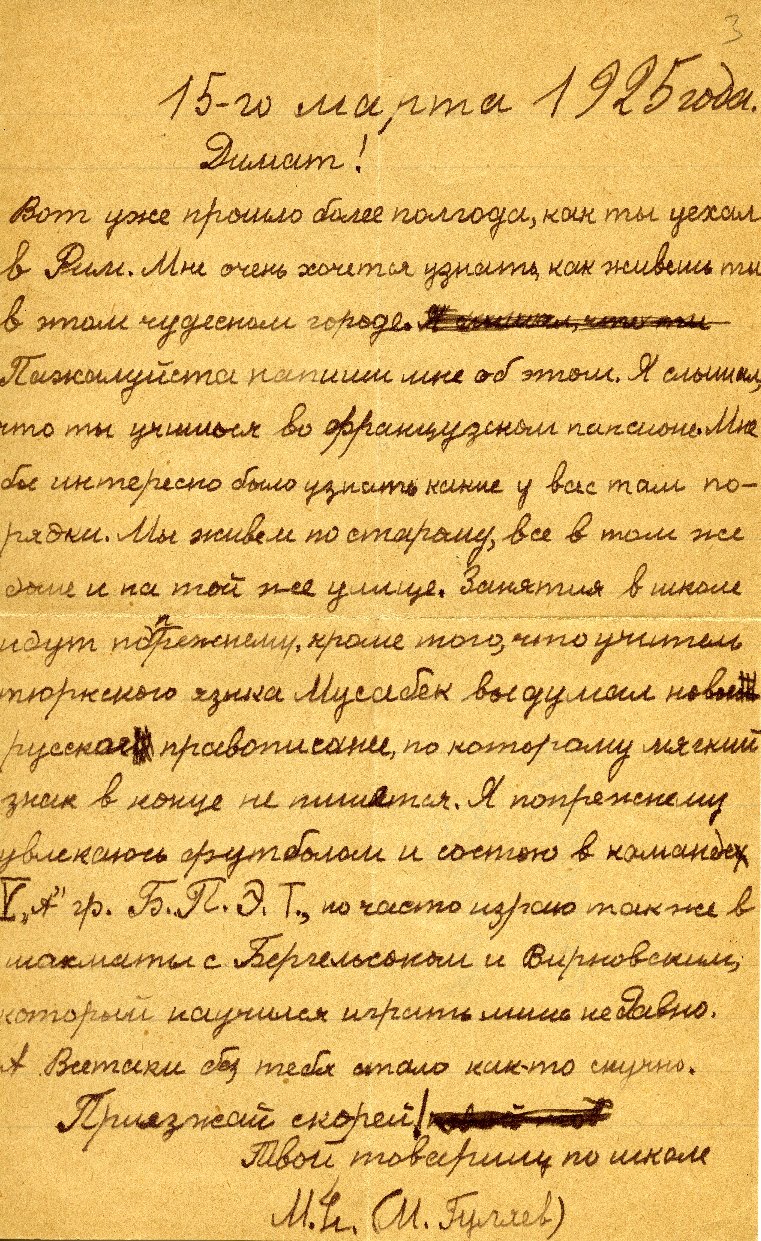 3
15-го марта 1925 года.
Димат!
Вот уже прошло более полгода, как ты уехал
в Рим. Мне очень хочется узнать, как живешь ты
в этом чудесном городе. Я слышал, что ты
Пажалуйста напиши мне об этом. Я слышал,
что ты учишься во французском пансионе. Мне
бы интересно было узнать какие у вас там по-
рядки. Мы живем по старому, все в том же
доме и на той же улице. Занятия в школе
идут попрежнему, кроме того, что учитель
тюркского языка Мусабек выдумал новое
русское правописание, по которому мягкий
знак в конце не пишется. Я попрежнему
увлекаюсь футболом и состою в команде
V "А" гр. Б.П.Э.Т., но часто играю также в
шахматы с Бергельсоном и Вирновским,
который научился играть лишь недавно.
А Всетаки без тебя стало как-то скучно.
Приезжай скорей!
Твой товарищ по школе
(М. Гуляев)